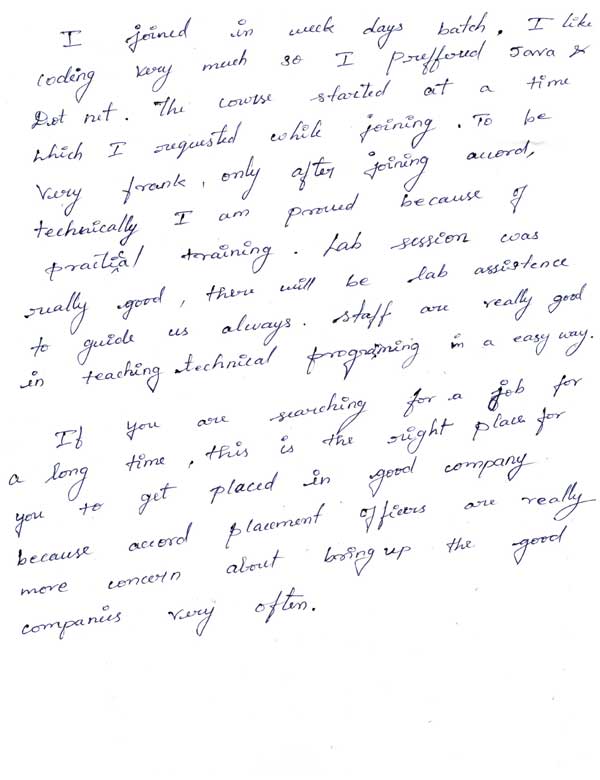 I joined in week days batch. I like
coding very much so I preffered Java &
Dot net. The course started at a time
which I requested while joining. To be
very frank, only after joining accord,
technically I am proud because of
practical training. Lab session was
really good, there will be lab assistence
to guide us always. Staff are really good
in teaching technical programing in a easy way.
If you are searching for a job for
a long time, this is the right place for
you to get placed in good company
because accord placement officers are really
more concern about bring up the good
companies very often.